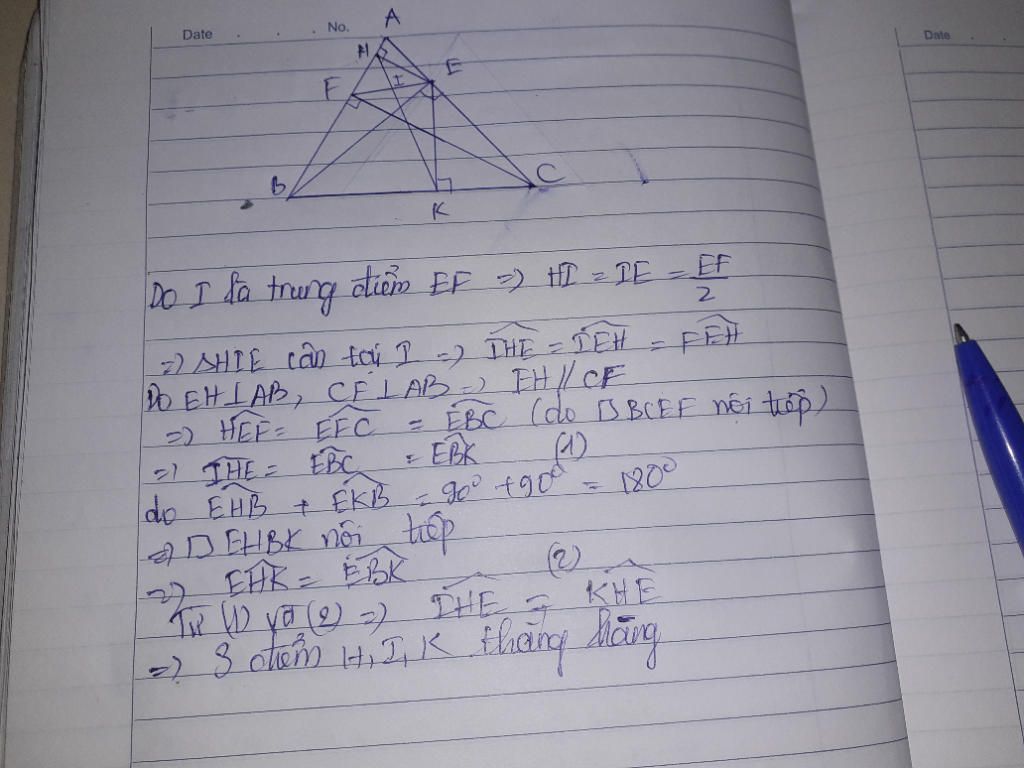 Date No.
Date
A
H
E
F
I
B
C
K
Do I là trung điểm EF => HI = IE = EF/2
=> ΔHIE cân tại I => \widehat{IHE} = \widehat{IEH} = \widehat{FEH}
Do EH⊥AB, CF⊥AB => EH // CF
=> \widehat{HEF} = \widehat{EFC} = \widehat{EBC} (do □BCEF nội tiếp)
=> \widehat{IHE} = \widehat{EBC} = \widehat{EBK} (1)
do \widehat{EHB} + \widehat{EKB} = 90° + 90° = 180°
=> □ EHBK nội tiếp
=> \widehat{EHK} = \widehat{EBK} (2)
Từ (1) và (2) => \widehat{IHE} = \widehat{KHE}
=> 3 điểm H, I, K thẳng hàng